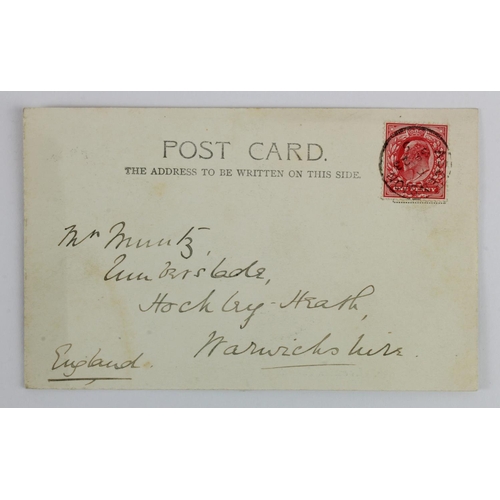 POST CARD.
THE ADDRESS TO BE WRITTEN ON THIS SIDE.
ONE PENNY
Mr Muntz,
Umberslade,
Hockley-Heath,
Warwickshire.
England.